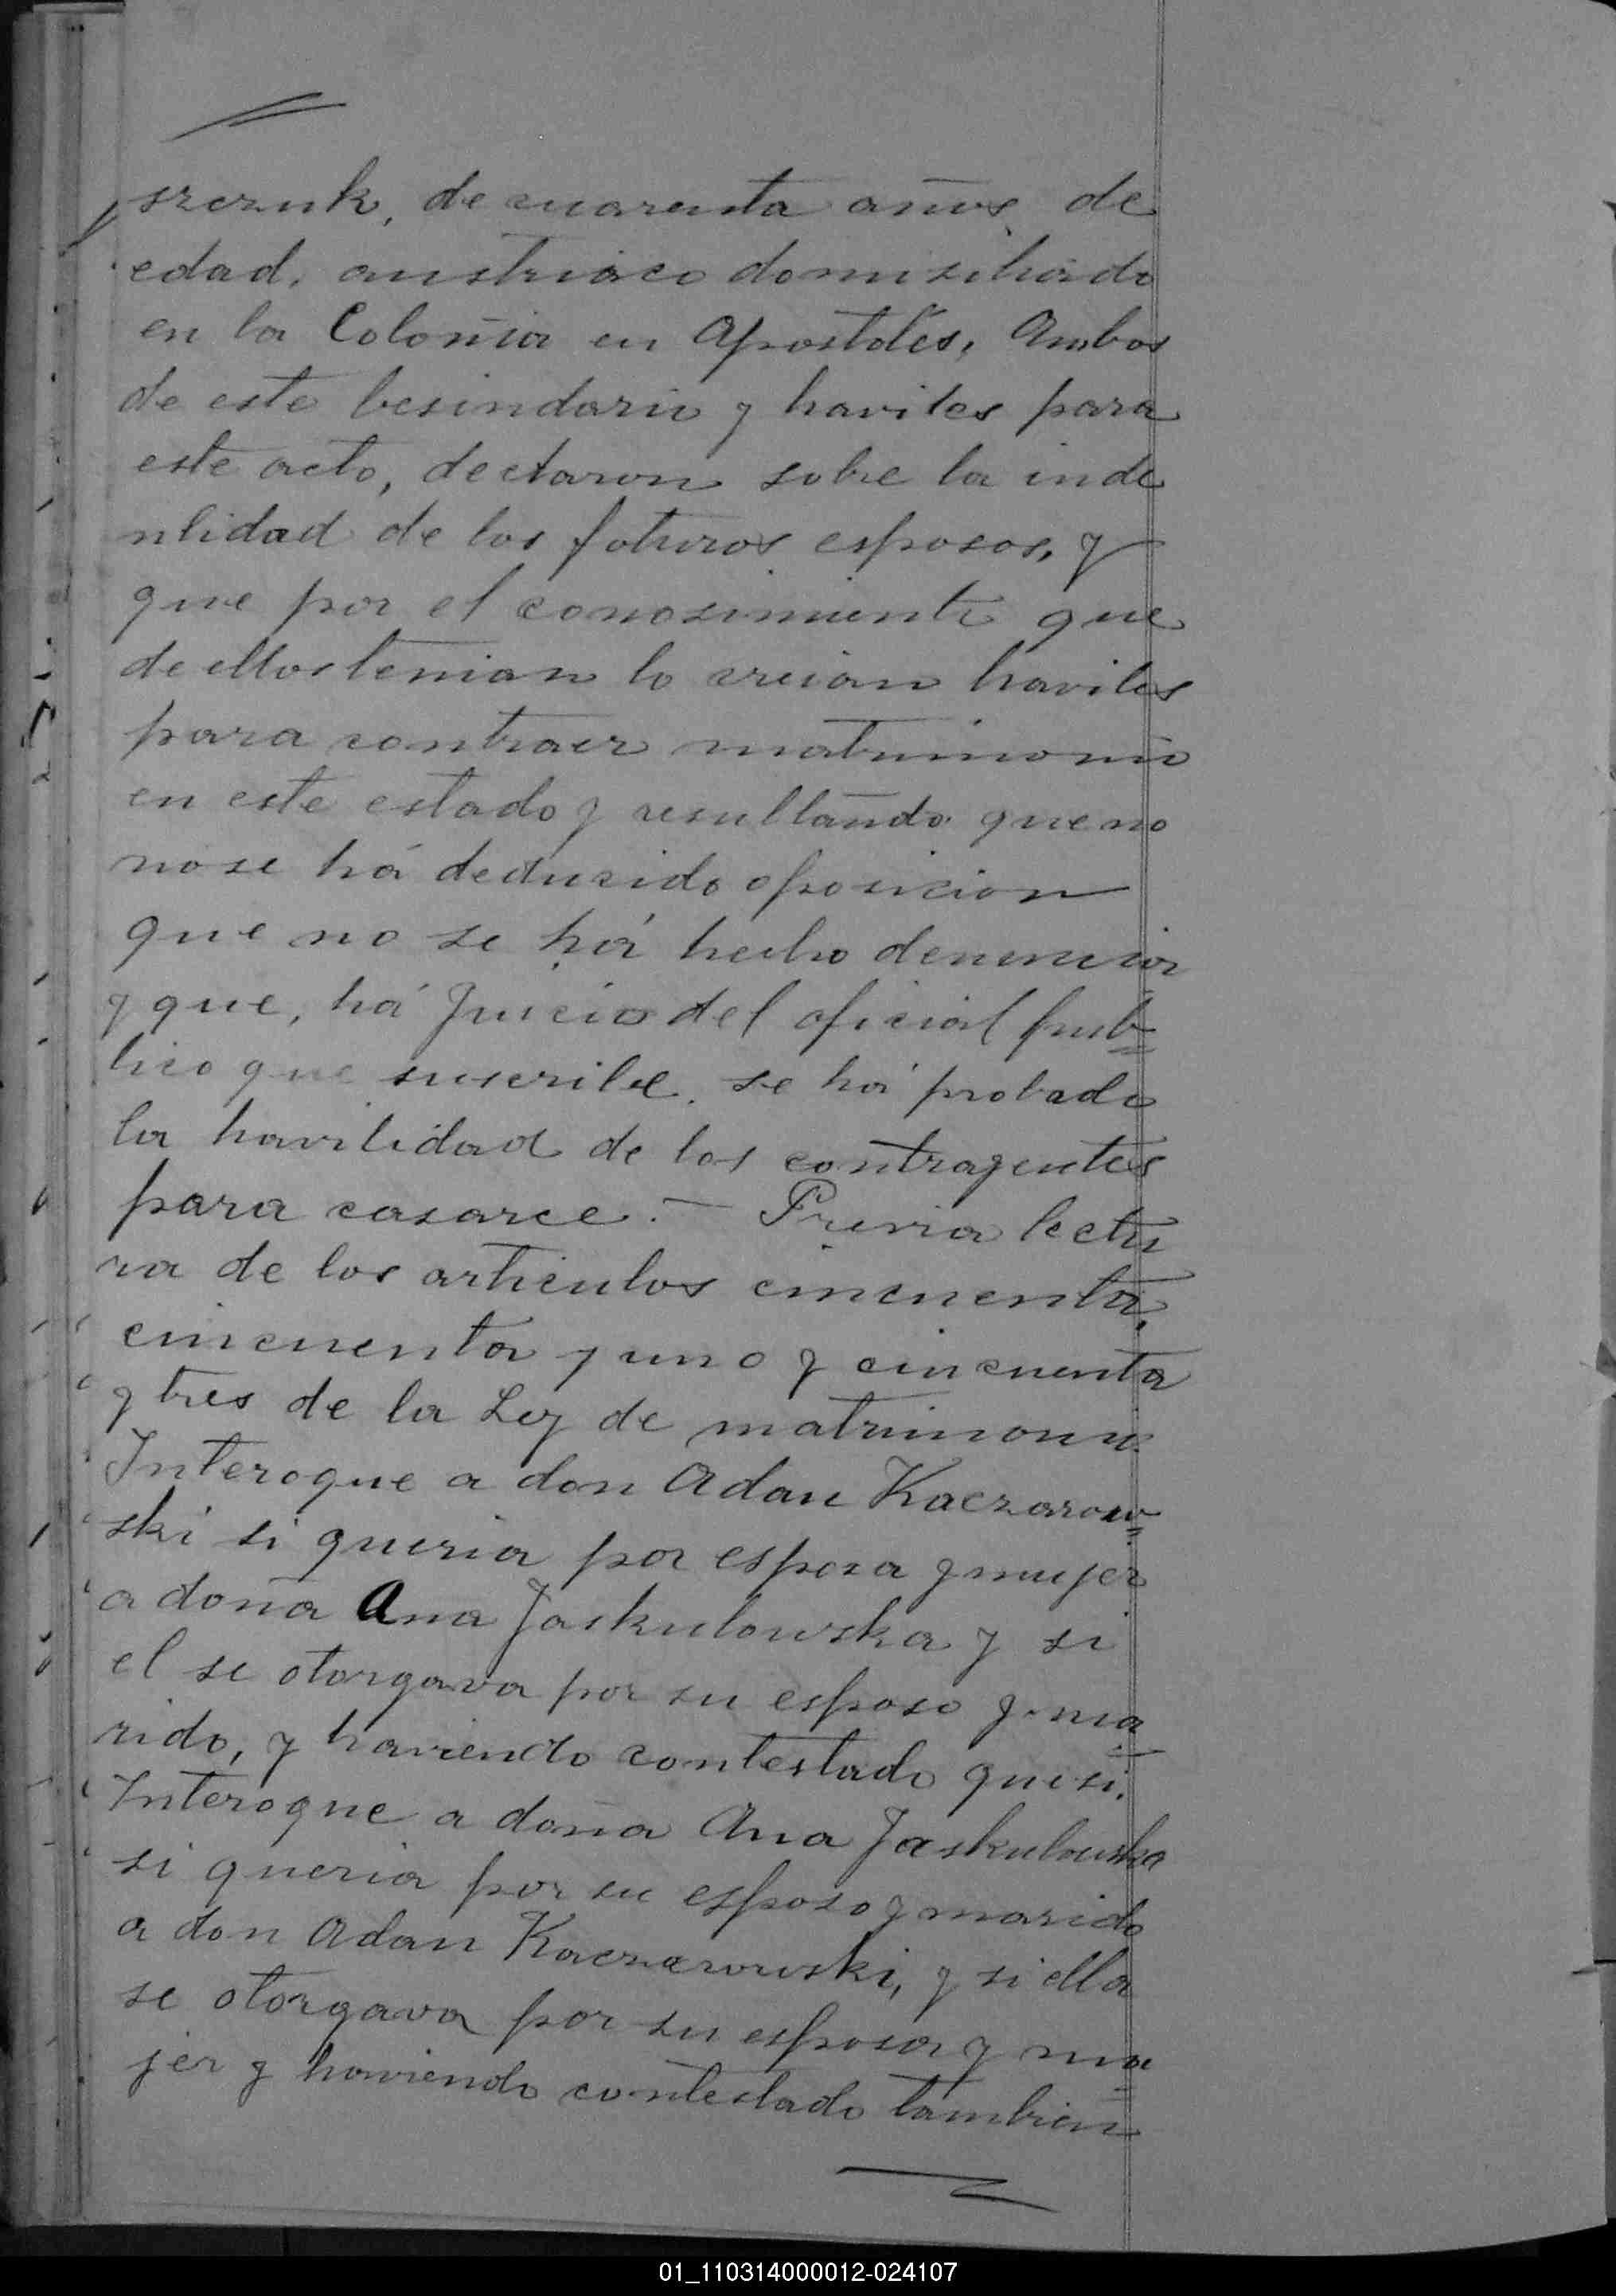 szczuk, de cuarenta años de
edad, austriaco domisiliado
en la Coloñia en Apostoles, Ambos
de este besindario y haviles para
este acto, declaron sobre la inde
ntidad de los foturos esposos, y
que por el conosimiento que
de ellos tenian lo creian haviles
para contraer matrimonio
en este estado y resultando que no
no se há dedusido oposicion
que no se há hecho denuncia
y que, há Juicio del oficial pub=
lico que suscribe. se há probado
la havilidad de los contragentes
para casarce. — Previa lectu
ra de los articulos cincuenta,
cincuenta y uno y cincuenta
y tres de la Ley de matrimonio.
Interogue a don Adan Kaczarow=
ski si queria por esposa y mujer
a doña Ana Jaskulowska y si
el se otorgava por su esposo y ma
rido, y haviendo contestado que si.
Interogue a doña Ana Jaskulowska
si queria por su esposo y marido
a don Adan Kaczarowski, y si ella
se otorgava por su esposa y mu
jer y haviendo contestado tambien
01_110314000012-024107